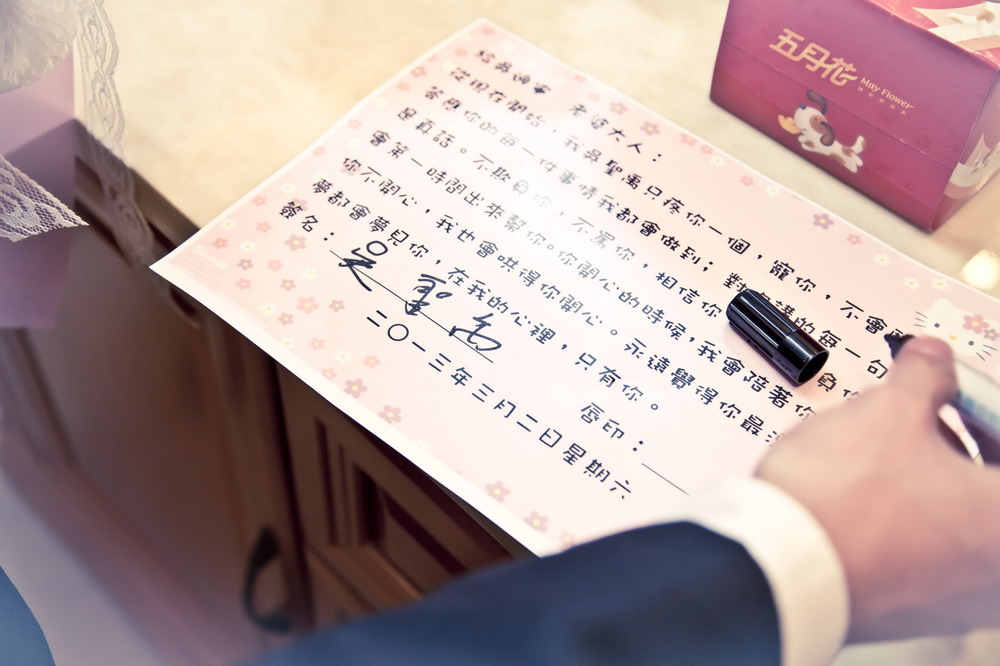 老婆大人：
從現在開始，我吳聖禹只疼你一個，寵你，不會
答應你的每一件事情我都會做到；對 講的每一句
是真話。不欺負你，不罵你，相信你 負你
會第一時間出來幫你。你開心的時候，我會陪著你
你不開心，我也會哄得你開心。永遠覺得你最
夢都會夢見你，在我的心裡，只有你。
簽名：吳聖禹
唇印：
二〇一三年三月二日星期六
五月花
May Flower